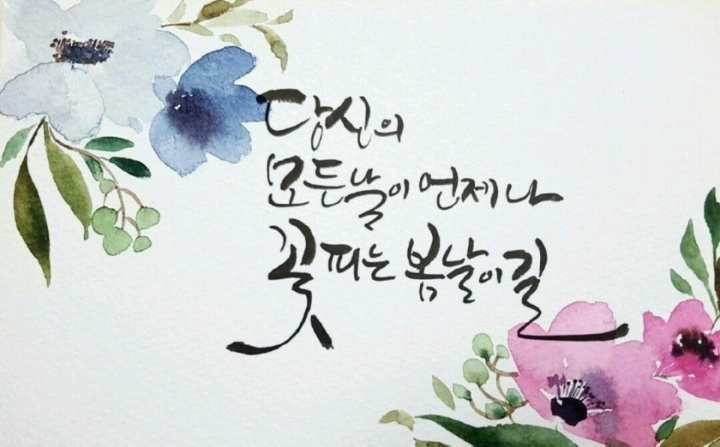 당신의
모든날이 언제나
꽃피는 봄날이길